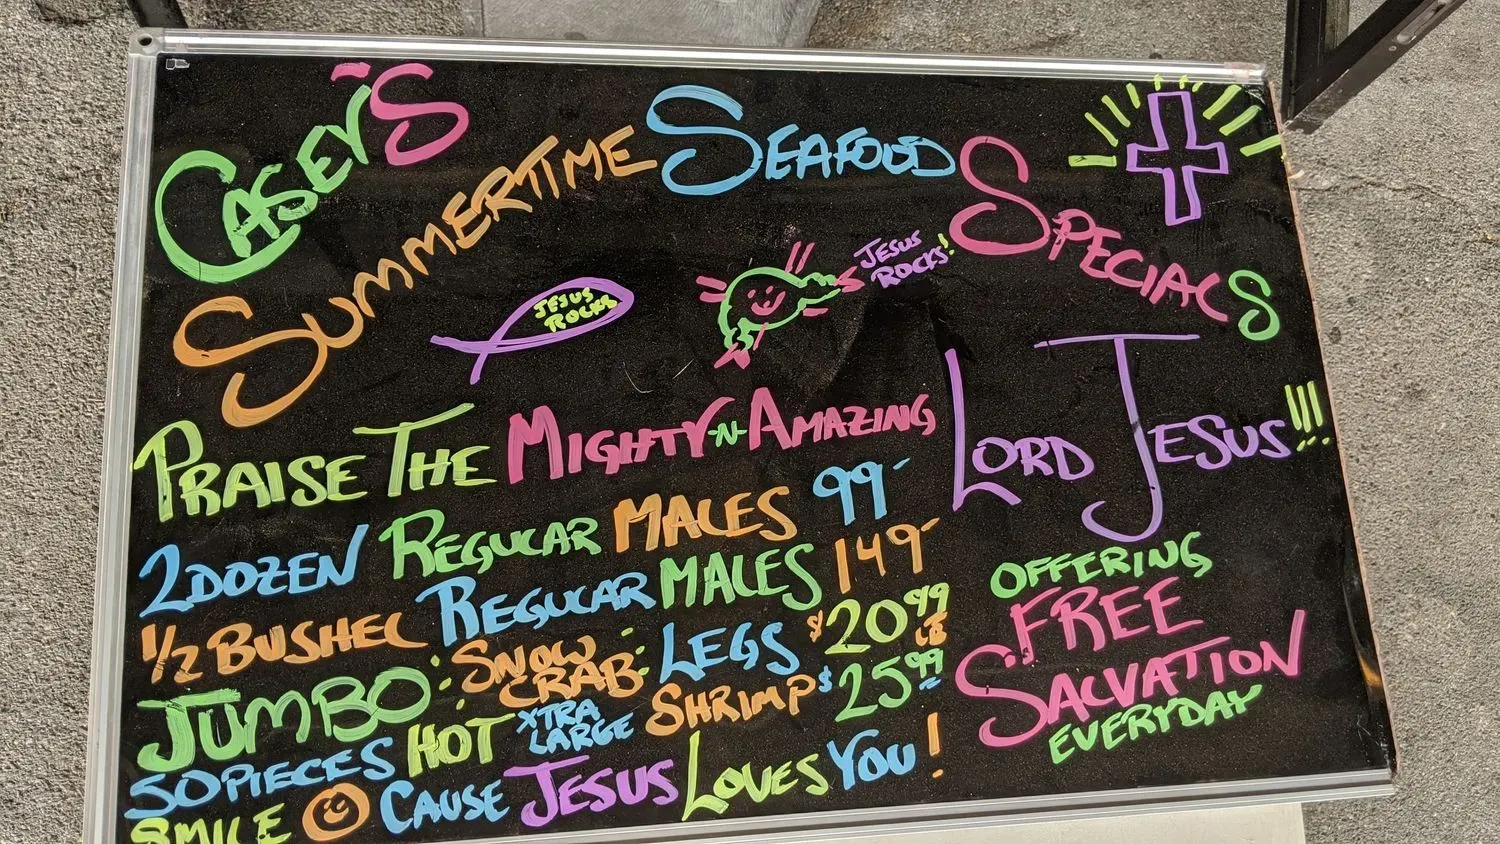 CASEY'S
SUMMERTIME SEAFOOD SPECIALS
JESUS ROCKS
JESUS ROCKS!
PRAISE THE MIGHTY-N-AMAZING LORD JESUS!!!
2 DOZEN REGULAR MALES 99-
1/2 BUSHEL REGULAR MALES 149-
JUMBO: SNOW CRAB: LEGS $20.99 LB
50 PIECES HOT XTRA LARGE SHRIMP $25.99
SMILE CAUSE JESUS LOVES YOU!
OFFERING
FREE
SALVATION
EVERYDAY